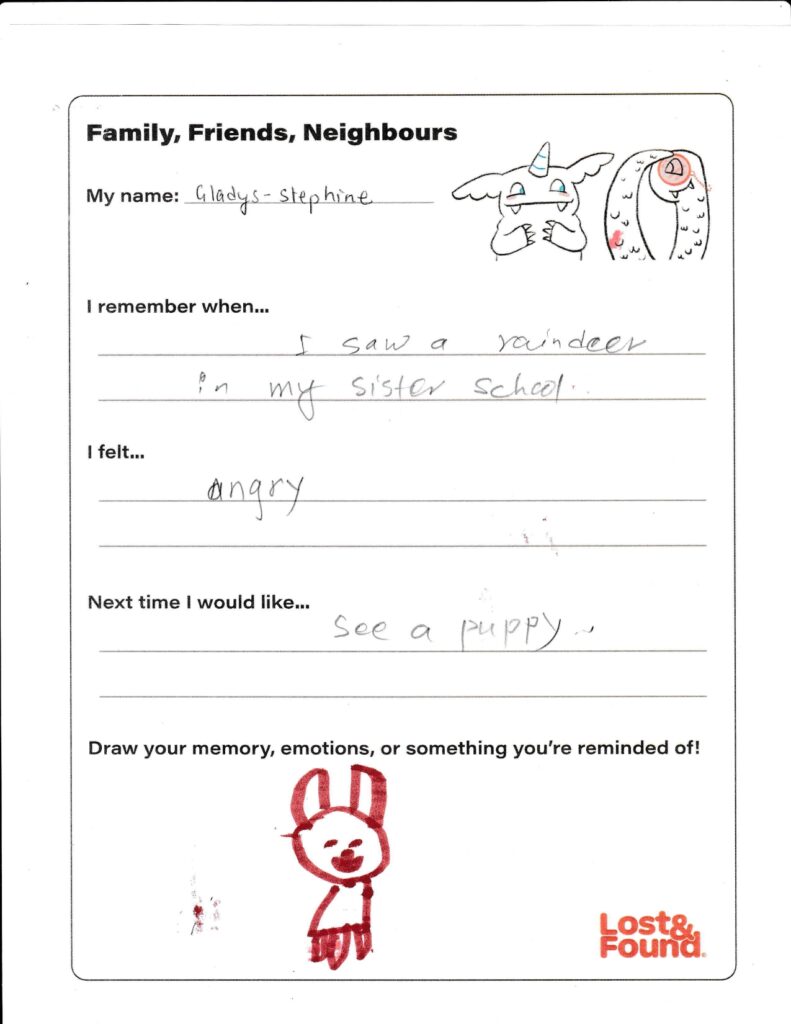 Family, Friends, Neighbours
My name: Gladys-stephine
I remember when...
I saw a raindeer
in my sister school..
I felt...
angry
Next time I would like...
see a puppy..
Draw your memory, emotions, or something you're reminded of!
Lost&
Found